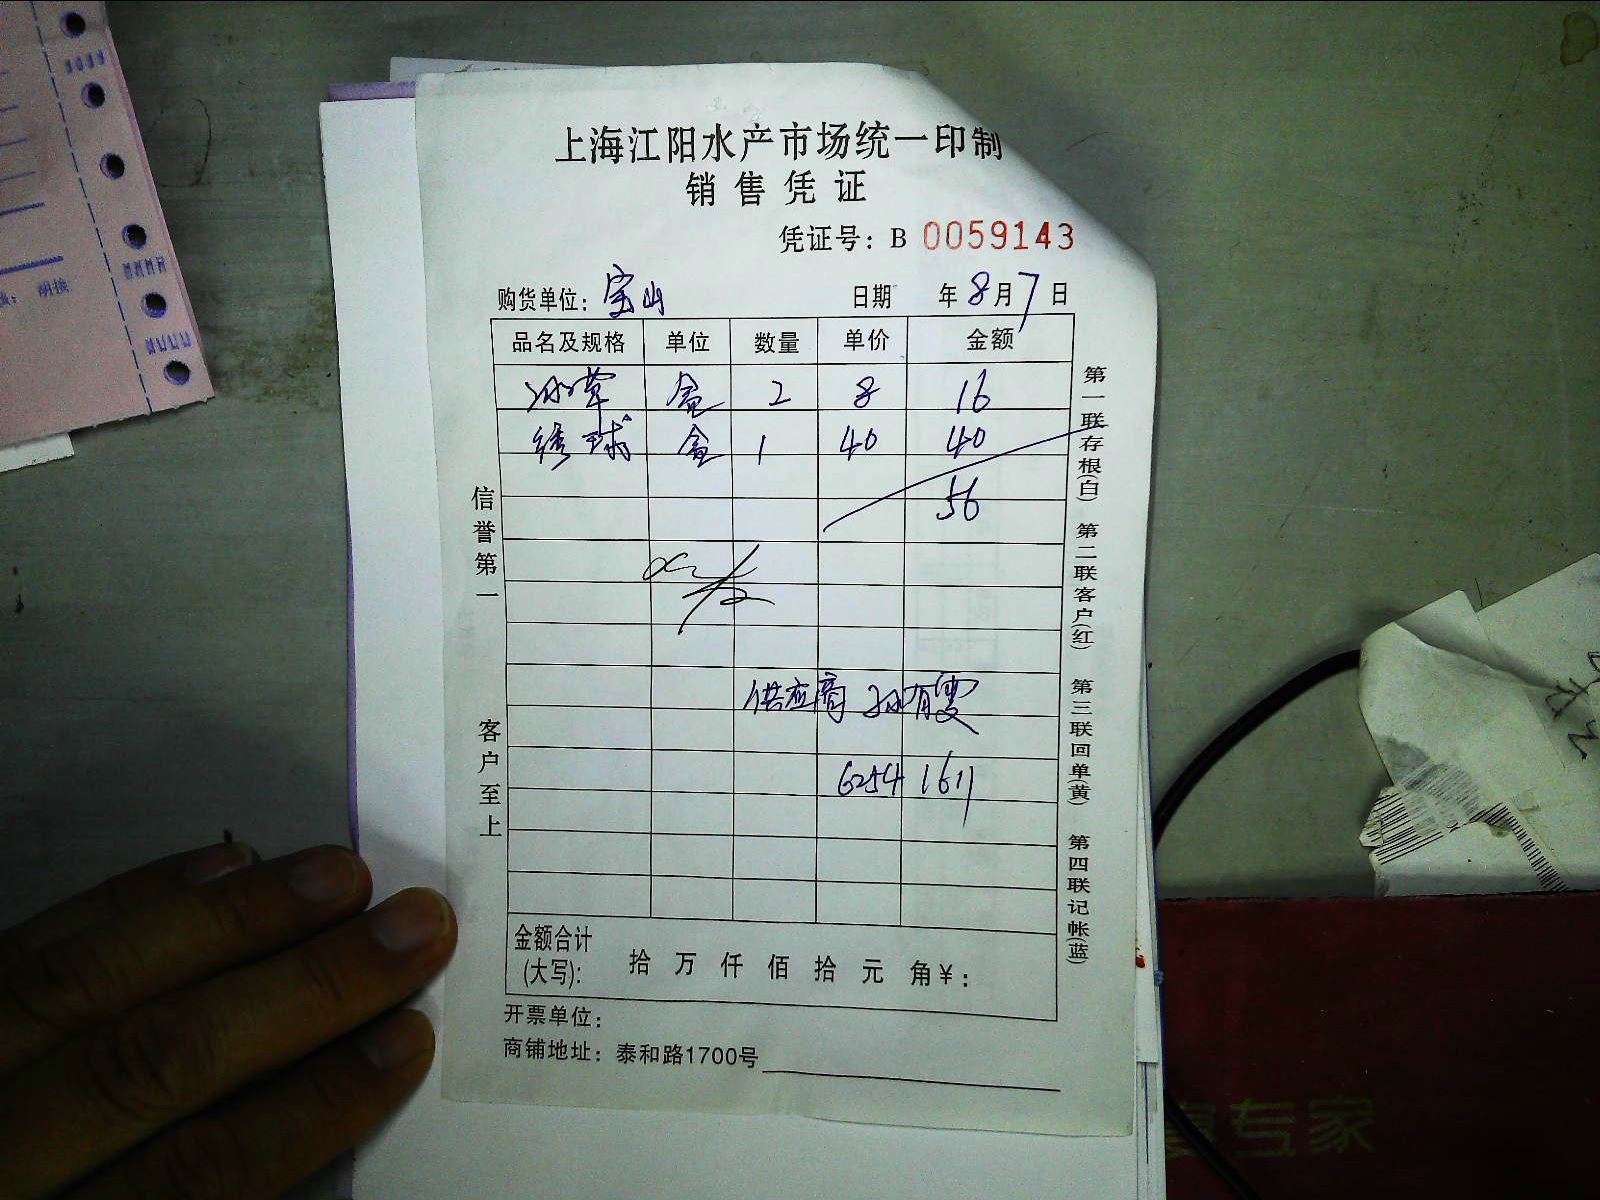 上海江阳水产市场统一印制
销售凭证
凭证号：B 0059143
购货单位：宝山 日期 年8月7日
品名及规格 单位 数量 单价 金额
冰草 盒 2 8 16
绣球 盒 1 40 40
56
供应商 孙有
6254 1611
金额合计
(大写)： 拾 万 仟 佰 拾 元 角 ¥：
开票单位：
商铺地址：泰和路1700号
信誉第一
客户至上
第一联存根(白) 第二联客户(红) 第三联回单(黄) 第四联记帐(蓝)
专家